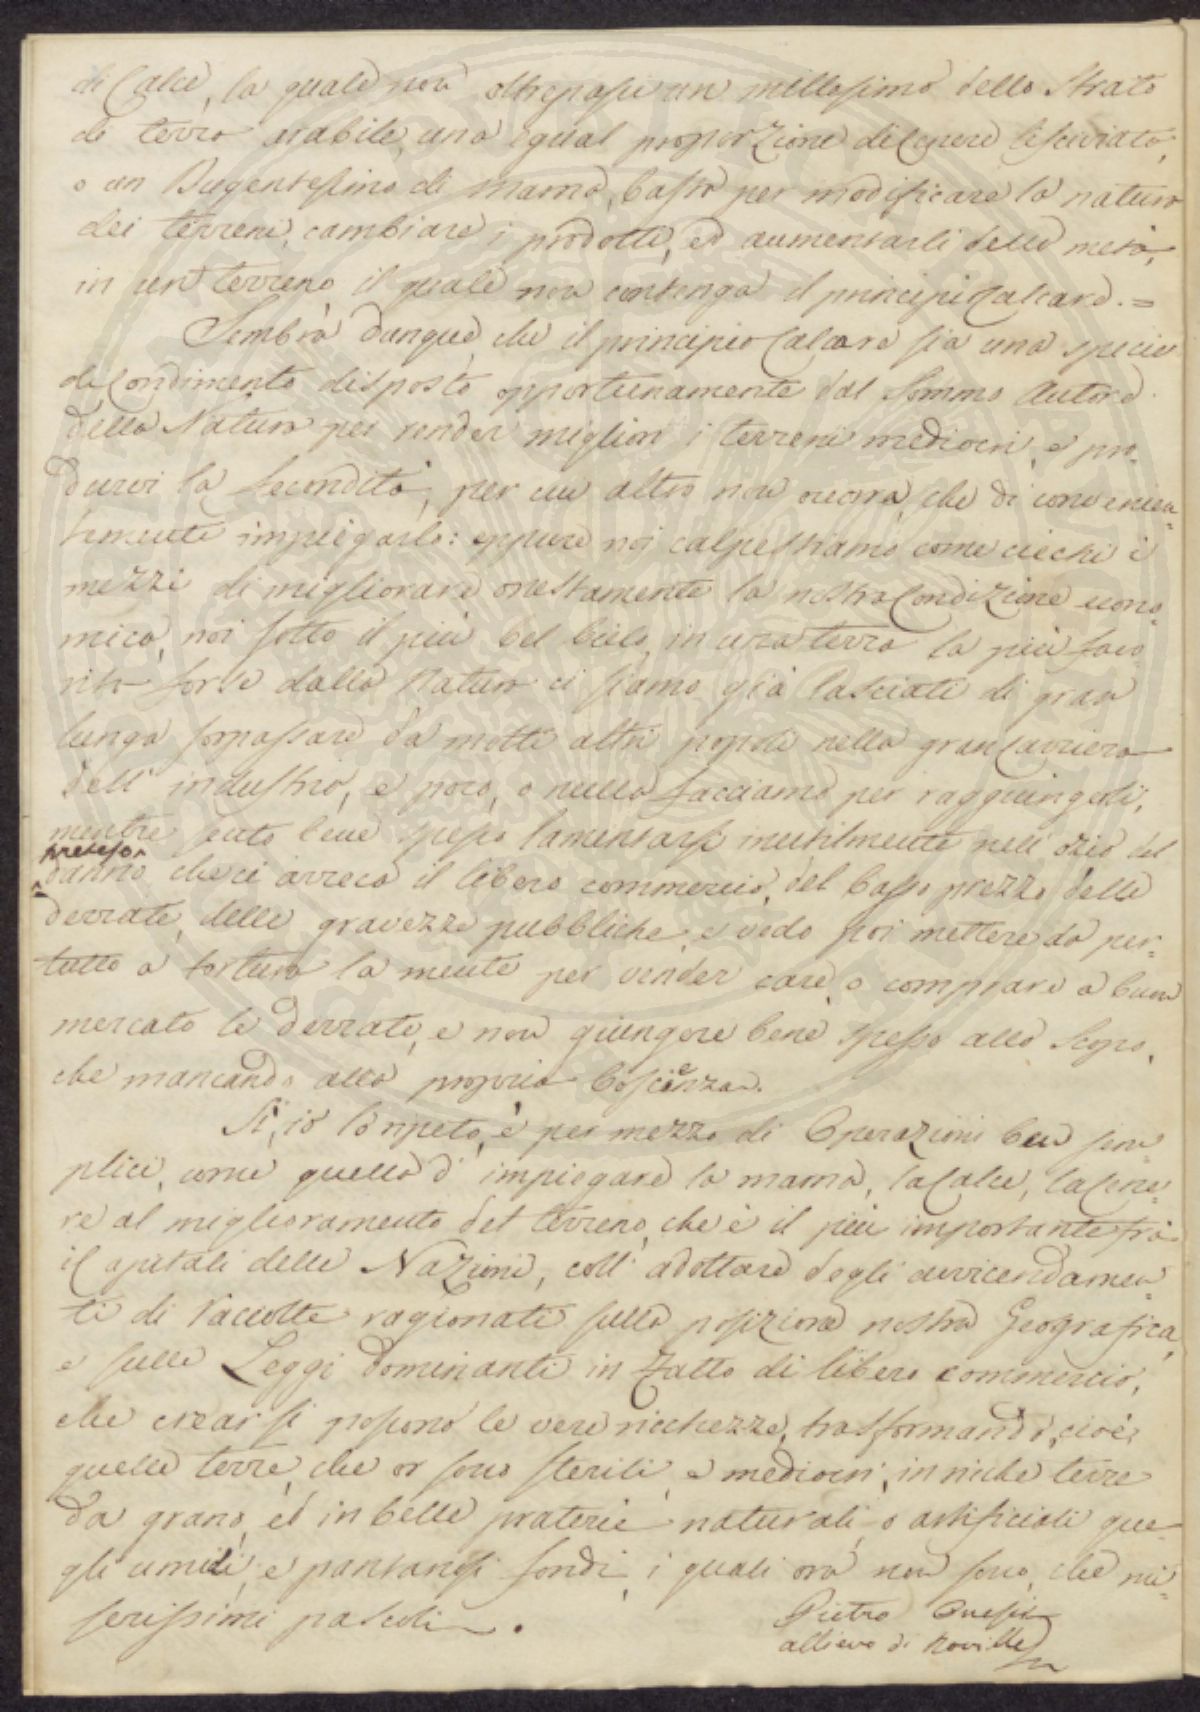 di Calce, la quale non oltrepassi un millesimo dello Strato
di terra arabile, una egual proporzione di Cenere lisciviata,
o un Dugentesimo di marna, basta per modificare la natura
dei terreni, cambiare i prodotti, ed aumentarli della metà,
in un terreno il quale non contenga il principio Calcare. =
Sembra dunque che il principio Calcare sia una specie
di Condimento disposto opportunamente dal Sommo Autore
della Natura per render migliori i terreni mediocri, e pro-
durvi la fecondità, per cui altro non occorra, che di convenien-
temente impiegarlo: eppure noi calpestiamo come ciechi i
mezzi di migliorare onestamente la nostra Condizione econo-
mica, noi sotto il più bel Cielo, in una terra la più favo-
rita forse dalla Natura ci siamo già lasciati di gran
lunga sorpassare da molti altri popoli nella gran Carriera
dell' industria, e poco, o nulla facciamo per raggiungerli,
mentre sento bene spesso lamentarsi inutilmente nell' ozio del
preteso
danno che ci arreca il libero commercio, del basso prezzo delle
derrate, delle gravezze pubbliche, e vedo poi mettere da per-
tutto a tortura la mente per vender care, o comprare a buon
mercato le derrate, e non giungere bene spesso allo Scopo,
che mancando alla propria Coscienza.
Sì, io lo ripeto, è per mezzo di Operazioni ben sem-
plici, come quella d' impiegare la marna, la Calce, la Cene-
re al miglioramento del terreno, che è il più importante fra
i Capitali delle Nazioni, coll' adottare degli avvicendamen-
ti di raccolte ragionati sulla posizione nostra Geografica,
e sulle Leggi dominanti in fatto di libero commercio,
che crear si possono le vere ricchezze, trasformando, cioè,
quelle terre, che or sono sterili, e mediocri, in ricche terre
da grano, ed in belle praterie naturali, o artificiali que-
gli umidi, e pantanosi fondi, i quali ora non sono, che mi-
serissimi pascoli.
Pietro
allievo di Roville